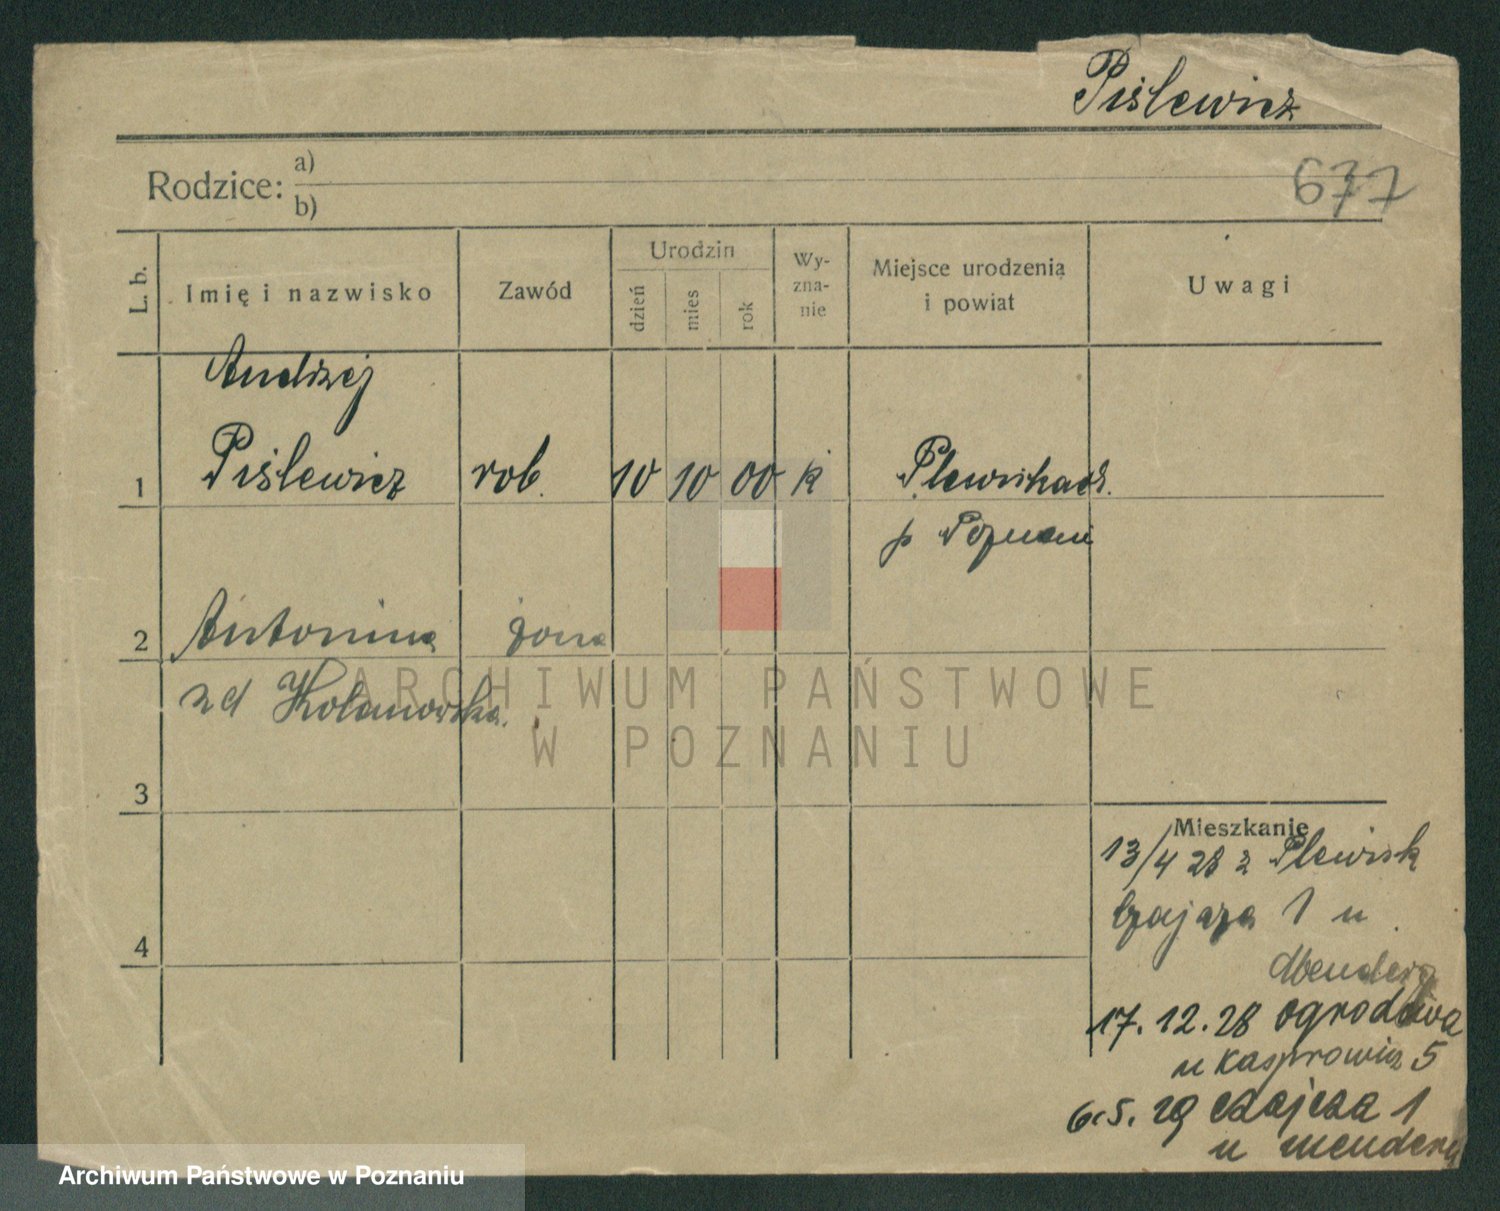 Piślewicz
677
Rodzice: a)
b)
L. b.
Imię i nazwisko
Zawód
Urodzin
dzień
mies
rok
Wy-
zna-
nie
Miejsce urodzenia
i powiat
Uwagi
Andrzej
1 Piślewicz rob. 10 10 00 k
p Poznani
2 Antonina żona
zd Kolanowska.
3
4
Mieszkanie
13/4 28 z Plewisk
1 u
17.12.28 ogrodowa
u kasprowicz 5
6.5.29 czajcza 1
u
ARCHIWUM PAŃSTWOWE
W POZNANIU
Archiwum Państwowe w Poznaniu